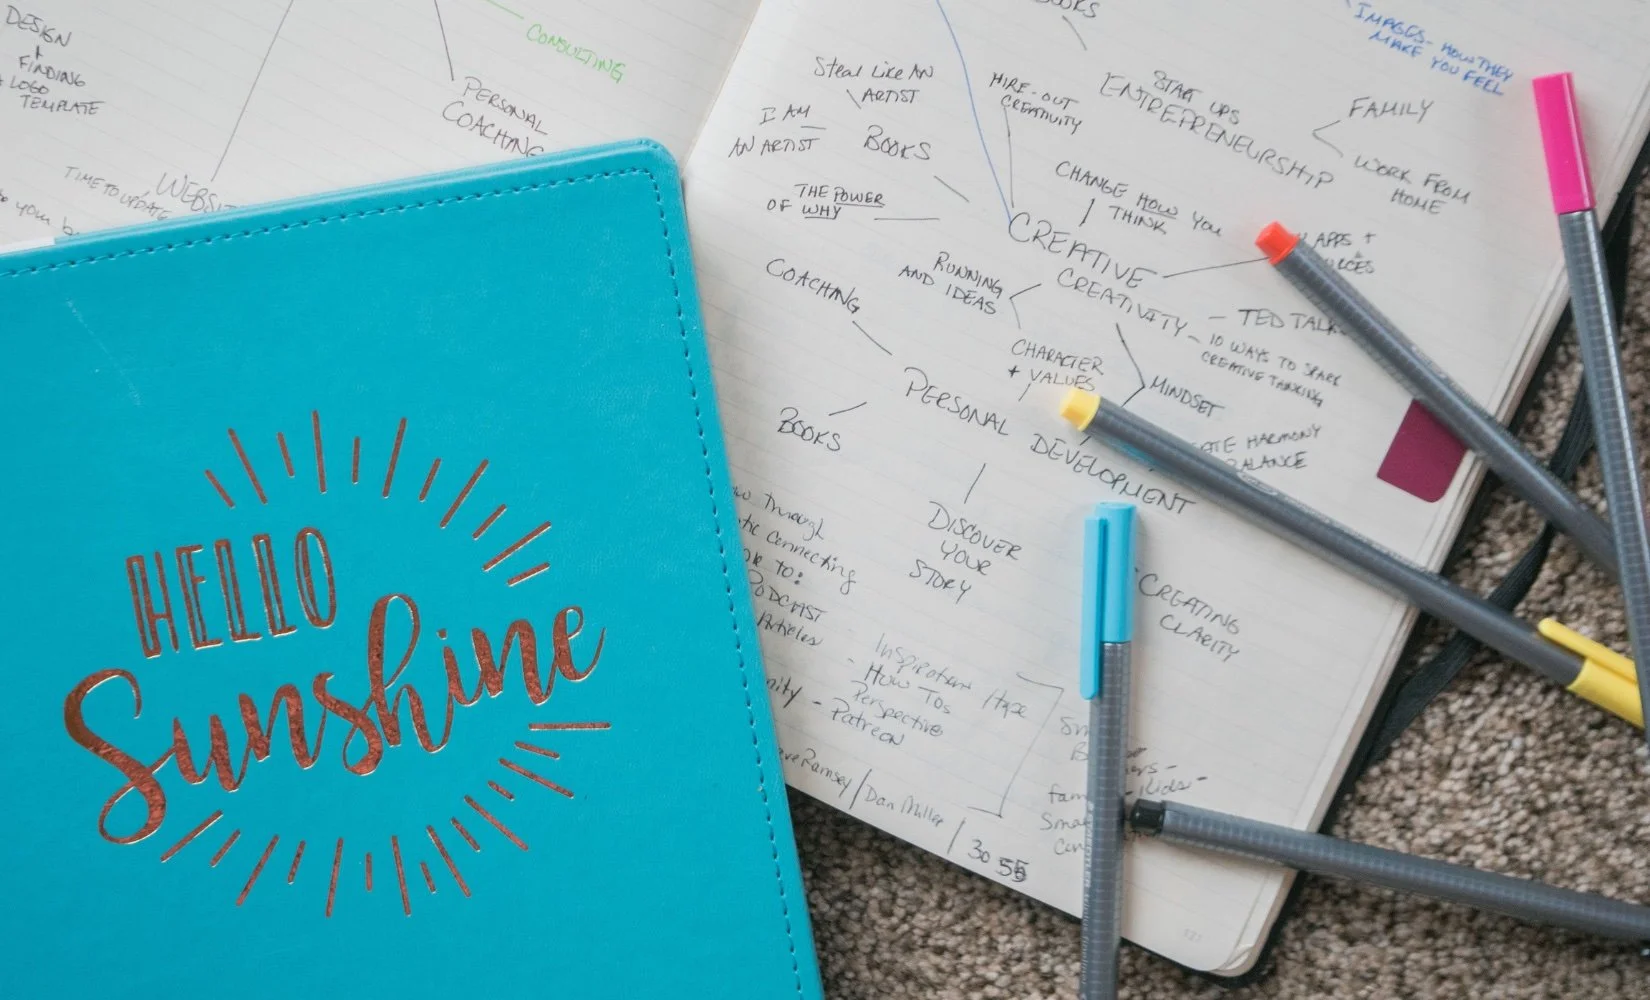 DESIGN
+
FINDING
LOGO
TEMPLATE
CONSULTING
PERSONAL
COACHING
TIME TO UPDATE
WEBSIT
your b
HELLO
Sunshine
OOKS
IMAGES - HOW THEY
MAKE YOU FEEL
Steal Like AN
ARTIST
I AM
AN ARTIST
BOOKS
HIRE-OUT
CREATIVITY
START UPS
ENTREPRENEURSHIP
FAMILY
WORK FROM
HOME
THE POWER
OF WHY
CHANGE HOW YOU
THINK
CREATIVE
CREATIVITY
APPS +
RCES
RUNNING
AND IDEAS
COACHING
TED TALK
- 10 WAYS TO SPARK
CREATIVE THINKING
CHARACTER
+ VALUES
MINDSET
PERSONAL
DEVELOPMENT
BOOKS
ATE HARMONY
BALANCE
DISCOVER
YOUR
STORY
ow Through
tic Connecting
to:
PODCAST
Articles
CREATING
CLARITY
Inspiration /type
- How Tos
Perspective
- Patreon
nity
ve Ramsey / Dan Miller /
30 55
fam
- Kids -
Sma